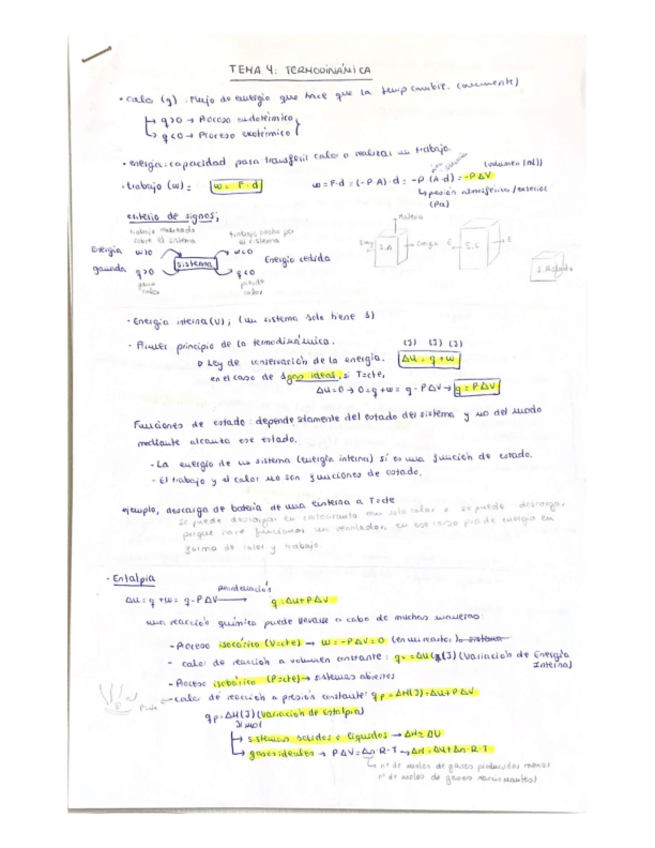 TEMA 4: TERMODINÁMICA
· calor (q): flujo de energía que hace que la temp cambie. (comúnmente)
↳ q>0 → Proceso endotérmico
↳ q<0 → Proceso exotérmico
· energía: capacidad para transferir calor o realizar un trabajo
· trabajo (w): w = F·d w = F·d = (-P·A)·d = -P (A·d) = -PΔV
(volumen (ΔV))
↳ presión atmosférica/exterior
(Pa)
criterio de signos;
trabajo realizado sobre el sistema
trabajo hecho por el sistema
Energía ganada
w>0
q>0
gana calor
sistema
w<0
q<0
pierde calor
Energía cedida
Materia
S.A
Energía
S.C
E
S. Aislado
· Energía interna (U); (un sistema solo tiene 1)
· Primer principio de la termodinámica. (J) (J) (J)
Ley de conservación de la energía. ΔU = q + w
en el caso de gas ideal, si T=cte,
ΔU=0 → 0=q+w= q-PΔV → q = PΔV
Funciones de estado: depende solamente del estado del sistema y no del modo
mediante alcanza ese estado.
- La energía de un sistema (energía interna) sí es una función de estado.
- El trabajo y el calor no son funciones de estado.
ejemplo, descarga de batería de una linterna a T=cte
se puede descargar en calor o se puede descargar
porque hace funcionar un ventilador, en ese caso pierde energía en
forma de calor y trabajo
· Entalpía
ΔU = q + w = q - PΔV → q = ΔU + PΔV
una reacción química puede llevarse a cabo de muchas maneras:
- Proceso isocórico (V=cte) → w = -PΔV = 0 (en un reactor)
- calor de reacción a volumen constante: qv = ΔU (J) (Variación de Energía
Interna)
- Proceso isobárico (P=cte) → sistemas abiertos
- calor de reacción a presión constante: qp = ΔH(J) = ΔU + PΔV
qp = ΔH (J) (variación de entalpía)
J/mol
↳ sistemas sólidos o líquidos → ΔH ≈ ΔU
↳ gases ideales → PΔV = Δn·R·T → ΔH = ΔU + Δn·R·T
↳ nº de moles de gases productos menos
nº de moles de gases reaccionantes)